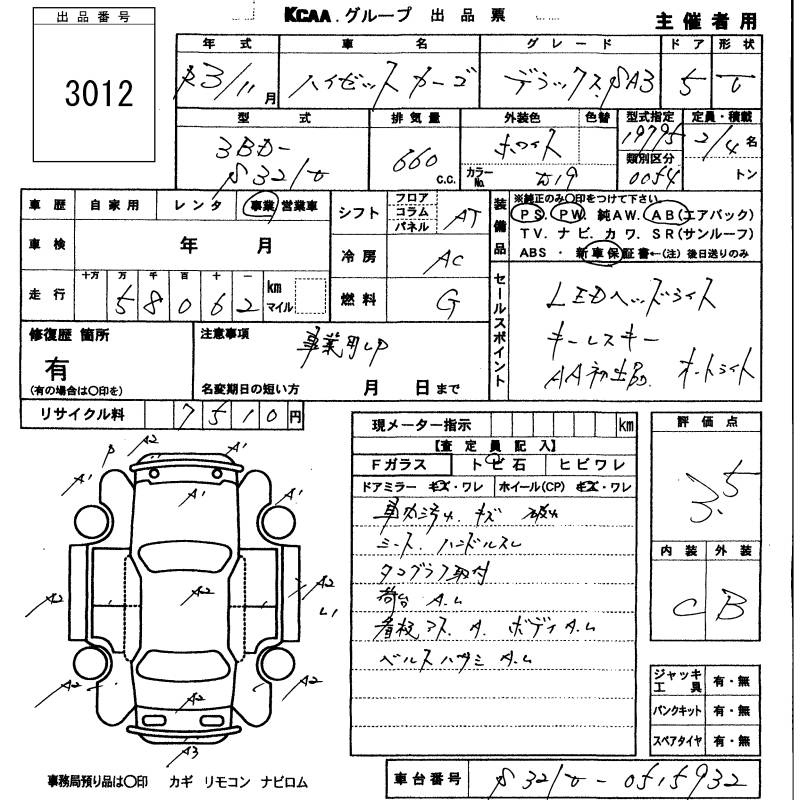 KCAA グループ 出品票
主催者用
出品番号
3012
年式 車名 グレード ドア 形状
R3/11月 ハイゼットカーゴ デラックスSA3 5 V
型式 排気量 外装色 色替 型式指定 定員・積載
3BD-S321V 660 C.C. ホワイト 19775 2/4名
カラーNo. W19 類別区分 0054 トン
車歴 自家用 レンタ 事業 営業車
車検 年 月
走行 十万 万 千 百 十 一
58062 km マイル
シフト フロア コラム パネル AT
冷房 AC
燃料 G
装備品 ※純正のみ○印をつけて下さい
PS. PW. 純AW. AB(エアバッグ)
TV. ナビ. カワ. SR(サンルーフ)
ABS ・ 新車保証書←(注) 後日送りのみ
セールスポイント
LEDヘッドライト
キーレスキー
AA初出品。 オートライト
修復歴 箇所
有
(有の場合は○印を)
注意事項 事業用UP
名変期日の短い方 月 日まで
リサイクル料 7510円
現メーター指示 km
【査定員記入】
Fガラス トビ石 ヒビワレ
ドアミラー キズ・ワレ ホイール(CP) キズ・ワレ
車内汚れ. キズ 破れ
シート. ハンドルスレ
タコグラフ取付
荷台 A.U
看板アト. A. ボディA.U
ベルトハサミ A.U
評価点
3.5
内装 外装
C B
ジャッキ 工具 有・無
パンクキット 有・無
スペアタイヤ 有・無
A2 A1
P
A1 A1 A1
A2 A2 A2
U1
A2 A2 A2
A3
事務局預り品は○印 カギ リモコン ナビロム
車台番号 S321V-0515932